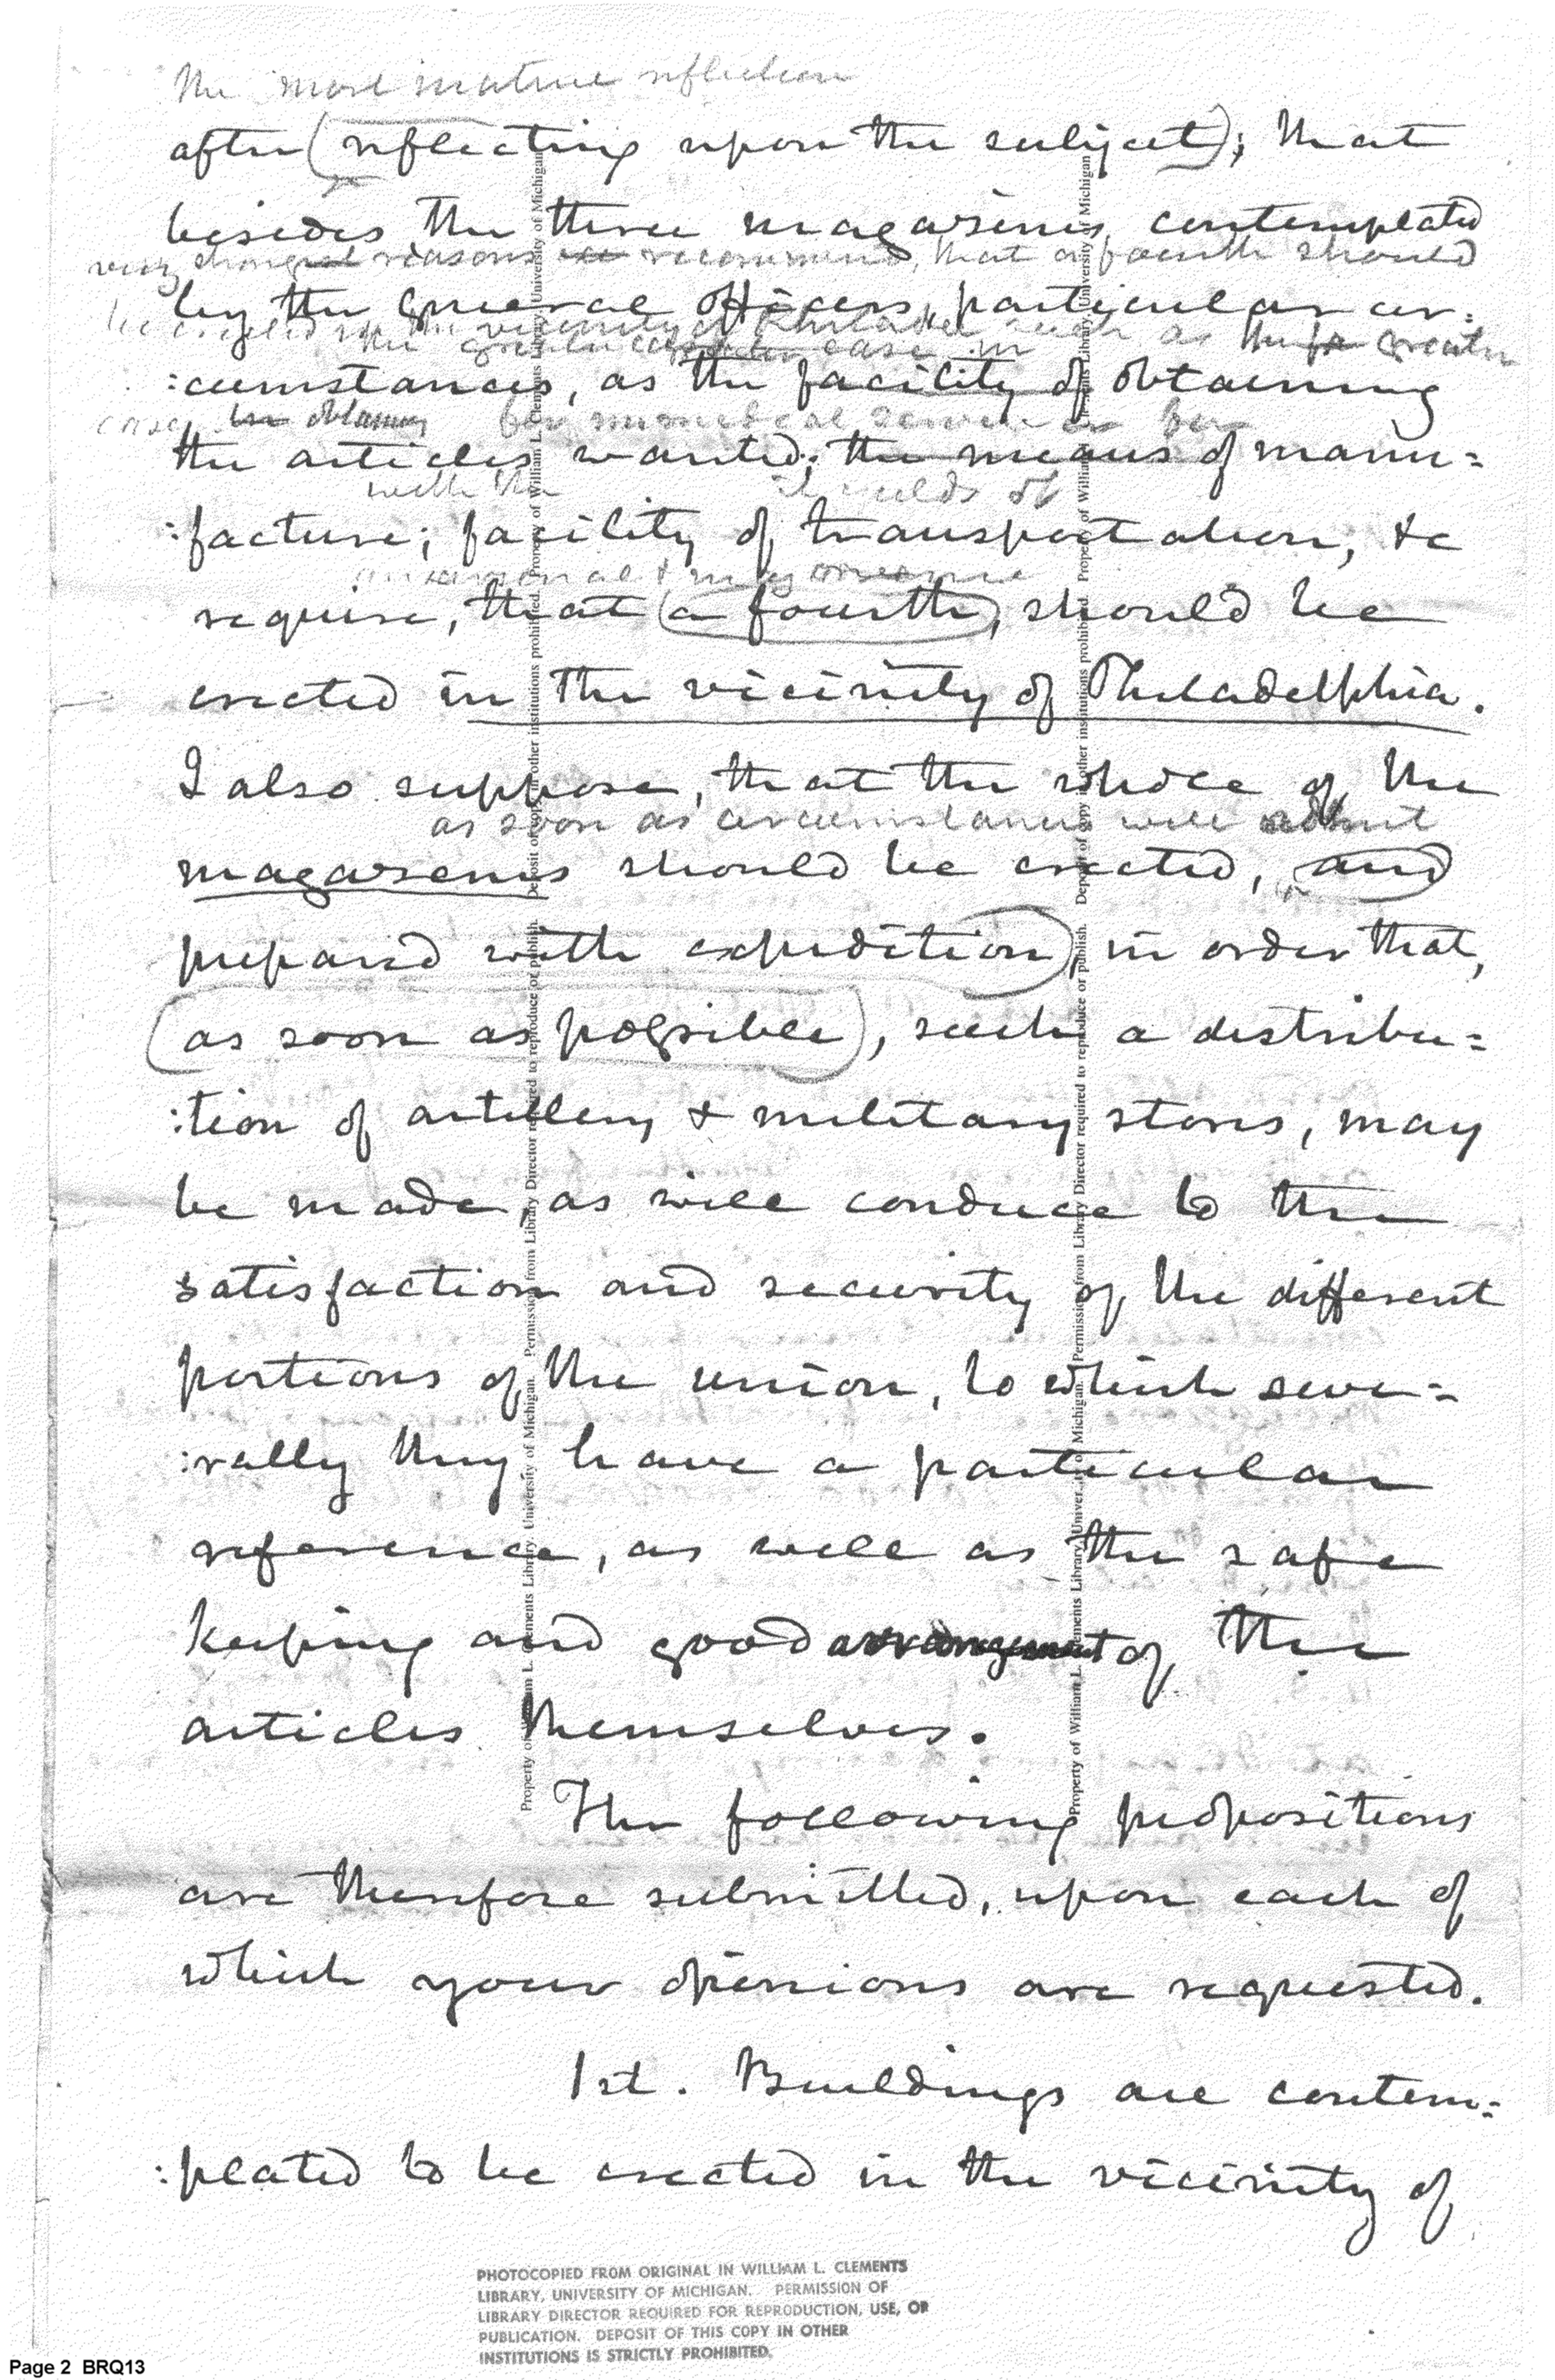 the most mature reflection
after (reflecting upon the subject); that
besides the three magazines, contemplated
very strongest reasons recommend, that a fourth should
by the General Officers, particular cir:
be erected in the vicinity of Philadel such as the greater
the greater ease in
:cumstances, as the facility of obtaining
case, in obtaining for service or for
the articles wanted; the means of manu=
with the
:facture; facility of transportation, &c
an arsenal &
require, that (a fourth), should be
erected in the vicinity of Philadelphia.
I also suppose, that the whole of the
as soon as circumstances will admit
magazenes should be erected, (and
prepared with expedition), in order that,
(as soon as possible), such a distribu=
:tion of artillery & military stores, may
be made, as will conduce to the
satisfaction and security of the different
portions of the union, to which seve=
:rally they have a particular
reference, as well as the safe
keeping and good arrangement of the
articles themselves.
The following propositions
are therefore submitted, upon each of
which your opinions are requested.
1st. Buildings are contem=
:plated to be erected in the vicinity of
Property of William L. Clements Library, University of Michigan. Permission from Library Director required to reproduce or publish. Deposit of copy in other institutions prohibited. Property of William L. Clements Library, University of Michigan
Property of William L. Clements Library, University of Michigan. Permission from Library Director required to reproduce or publish. Deposit of copy in other institutions prohibited. Property of William L. Clements Library, University of Michigan
PHOTOCOPIED FROM ORIGINAL IN WILLIAM L. CLEMENTS
LIBRARY, UNIVERSITY OF MICHIGAN. PERMISSION OF
LIBRARY DIRECTOR REQUIRED FOR REPRODUCTION, USE, OR
PUBLICATION. DEPOSIT OF THIS COPY IN OTHER
INSTITUTIONS IS STRICTLY PROHIBITED.
Page 2 BRQ13